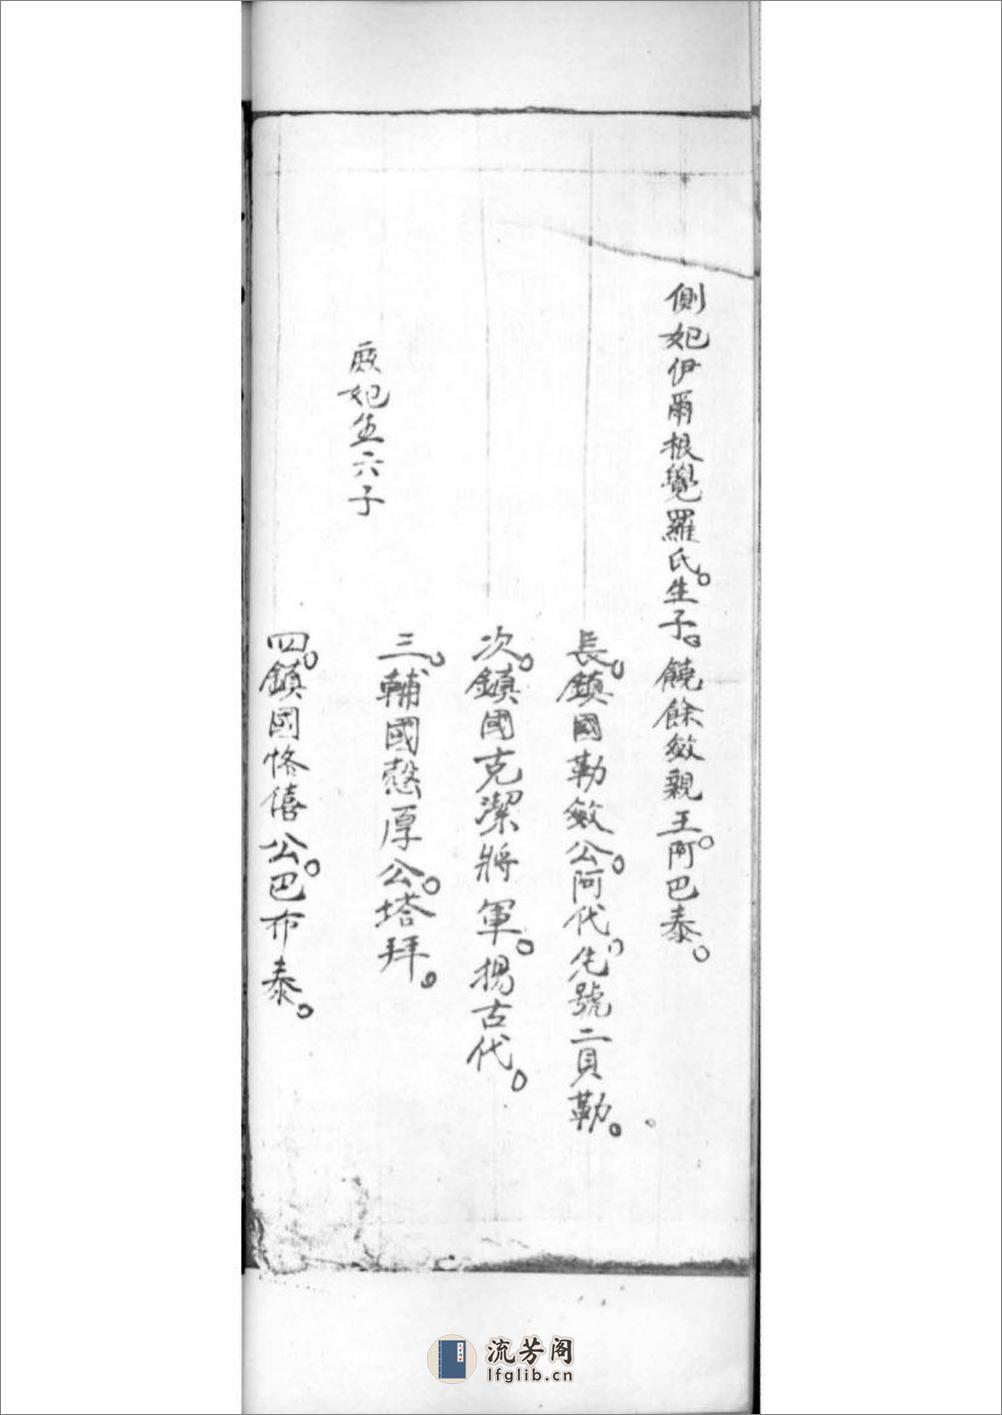 側妃伊爾根覺羅氏。生子。饒餘敏親王。阿巴泰。
長。鎮國勤敏公。阿代。先號二貝勒。
次。鎮國克潔將軍。揚古代。
三。輔國慤厚公。塔拜。
庶妃生六子
四。鎮國恪僖公。巴布泰。
流芳阁
lfglib.cn